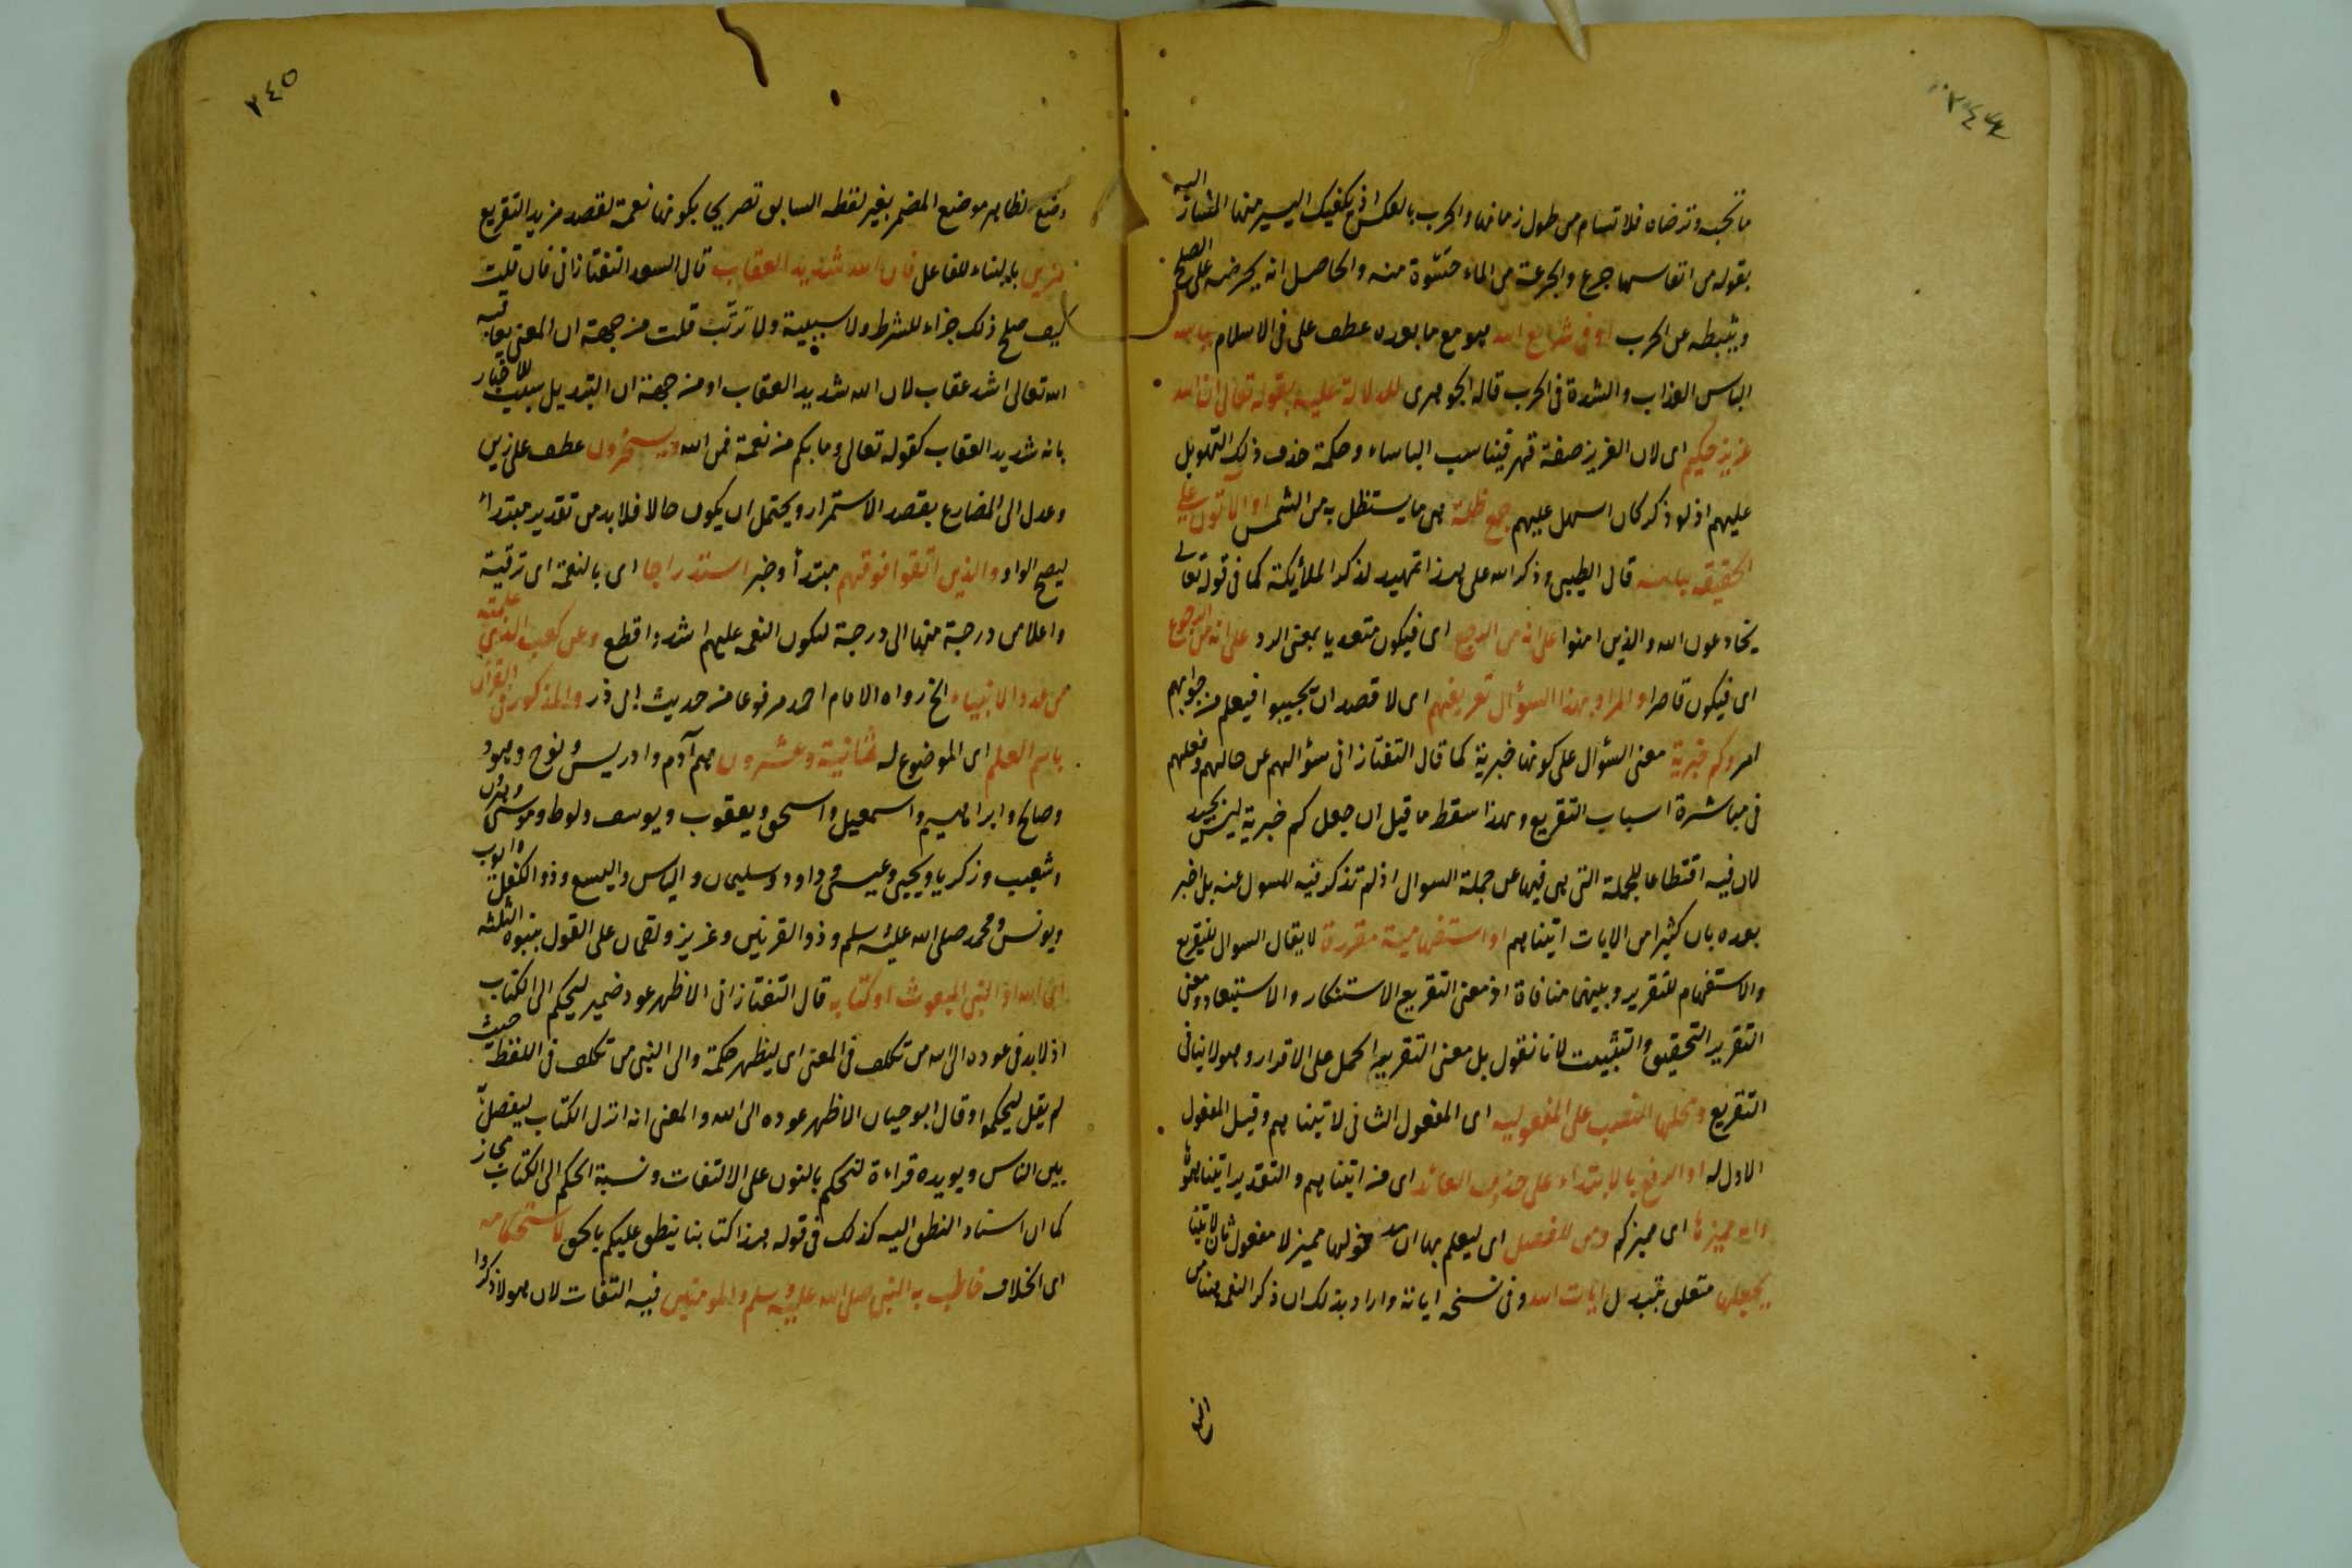 ٢٤٤
ما تحبه وترضاه فلا تسام من طول زمانها والحرب بالعكس اذ يكفيك اليسير منها المشار اليه
بقوله من انفاسها جرع والجرعة من الماء حسوة منه والحاصل انه يحرضه على الصلح
ويثبطه عن الحرب او فى شرايع الله هو مع ما بعده عطف على فى الاسلام باسه
الباس العذاب والشدة فى الحرب قاله الجوهرى للدلالة عليه بقوله تعالى ان الله
عزيز حكيم اى لان العزيز صفة قهر فيناسب الباساء وحكمة حذف ذلك التهويل
عليهم اذ لو ذكر كان اسهل عليهم جمع ظلة هى ما يستظل به من الشمس او الآتون على
الحقيقه ببأسه قال الطيبى وذكر الله على هذا تمهيد لذكر الملائكة كما فى قوله تعالى
يخادعون الله والذين امنوا على انه من الرجع اى فيكون متعديا بمعنى الرد على انه من الرجوع
اى فيكون قاصرا والمراد بهذا السؤال تقريعهم اى لا قصد ان يجيبوا فيعلم من جوابهم
امر وكم خبرية معنى السؤال على كونها خبرية كما قال التفتازانى سؤالهم عن حالهم وفعلهم
فى مباشرة اسباب التقريع وبهذا سقط ما قيل ان جعل كم خبرية ليس بجيد
لان فيه اقتطاعا للجملة التى هى فيها عن جملة السوال اذ لم تذكر فيه المسول عنه بل اخبر
بعده بان كثيرا من الايات اتيناهم او استفهامية مقررة لا يقال السوال للتقريع
والاستفهام للتقرير وبينهما منافاة اذ معنى التقريع الاستنكار والاستبعاد ومعنى
التقرير التحقيق والتثبيت لانا نقول بل معنى التقرير الحمل على الاقرار وهو لا ينافى
التقريع ومحلها النصب على المفعوليه اى المفعول الثانى لاتيناهم وقيل المفعول
الاول له او الرفع بالابتداء على حذف العائد اى من اتيناهم والتقدير اتيناهموها
واية مميزها اى مميزكم ومن للفصل اى ليعلم بها ان مدخولها مميز لا مفعول ثان لاتينا
بجعلها متعلق بتبديل ايات الله وفى نسخه اياته واراد بذلك ان ذكر النعمه هنا من
وضع الظاهر موضع المضمر بغير لفظه السابق تصريحا بكونها نعمة لقصد مزيد التقريع
٢٤٥
زين بالبناء للفاعل فان الله شديد العقاب قال السعد التفتازانى فان قلت
كيف صلح ذلك جزاء للشرط ولا سببية ولا ترتب قلت من جهة ان المعنى يعاقبه
الله تعالى اشد عقاب لان الله شديد العقاب او من جهة ان التبديل سبب للاخبار
بانه شديد العقاب كقوله تعالى وما بكم من نعمة فمن الله ويسخرون عطف على زين
وعدل الى المضارع بقصد الاستمرار ويحتمل ان يكون حالا فلا بد من تقدير مبتداء
ليصح الواو والذين اتقوا فوقهم مبتدأ وخبر استدراجا اى بالنعمة اى ترقية
واعلا من درجة منها الى درجة لتكون النعمه عليهم اشد واقطع وعن كعب الذى علمته
من عدد الانبياء الخ رواه الامام احمد مرفوعا من حديث ابى ذر والمذكور فى القرآن
باسم العلم اى الموضوع له ثمانية وعشرون هم آدم وادريس ونوح وهود
وصالح وابراهيم واسمعيل واسحق ويعقوب ويوسف ولوط وموسى وهرون
وشعيب وزكريا ويحيى وعيسى وداود وسليمان والياس واليسع وذو الكفل وايوب
ويونس ومحمد صلى الله عليه وسلم وذو القرنين وعزيز ولقمان على القول بنبوة الثلثه
اى الله او النبى المبعوث او كتابه قال التفتازانى الاظهر عود ضمير ليحكم الى الكتاب
اذ لا بد فى عوده الى الله من تكلف فى المعنى اى ليظهر حكمه والى النبى من تكلف فى اللفظ حيث
لم يقل ليحكموا وقال ابو حيان الاظهر عوده الى الله والمعنى انه انزل الكتاب ليفصل به
بين الناس ويويده قراءة لنحكم بالنون على الالتفات ونسبة الحكم الى الكتاب مجاز
كما ان اسناد النطق اليه كذلك فى قوله هذا كتابنا ينطق عليكم بالحق لاستحكامه
اى الخلاف خاطب به النبى صلى الله عليه وسلم والمومنين فيه التفات لان هولا ذكروا